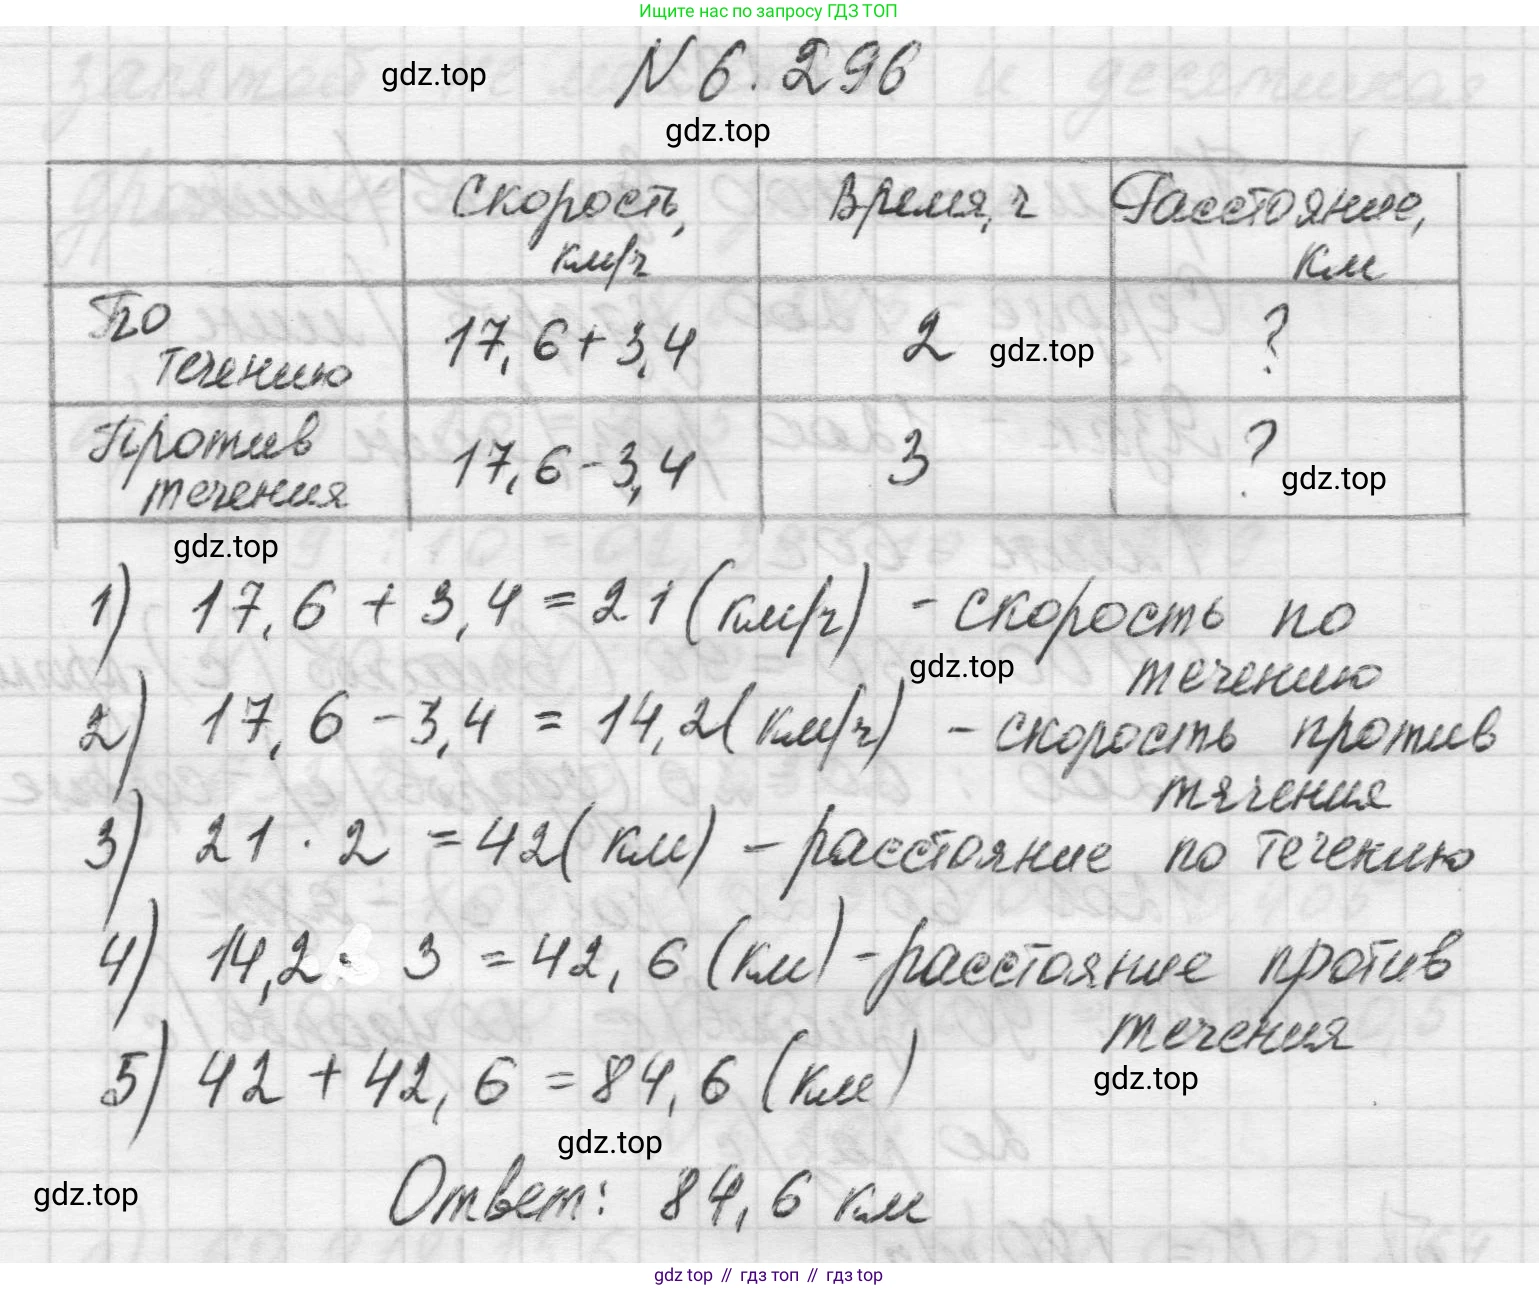 Ищите нас по запросу ГДЗ ТОП
gdz.top № 6.296
gdz.top
Скорость, км/ч Время, ч Расстояние, км
По течению 17,6+3,4 2 gdz.top ?
Против течения 17,6-3,4 3 ? gdz.top
gdz.top
1) 17,6 + 3,4 = 21 (км/ч) - скорость по
gdz.top течению
2) 17,6 - 3,4 = 14,2 (км/ч) - скорость против
тячения
3) 21 · 2 = 42 (км) - расстояние по течению
4) 14,2 · 3 = 42,6 (км) - расстояние против
течения
gdz.top
5) 42 + 42,6 = 84,6 (км)
gdz.top
gdz.top Ответ: 84,6 км
gdz top // гдз топ // гдз top